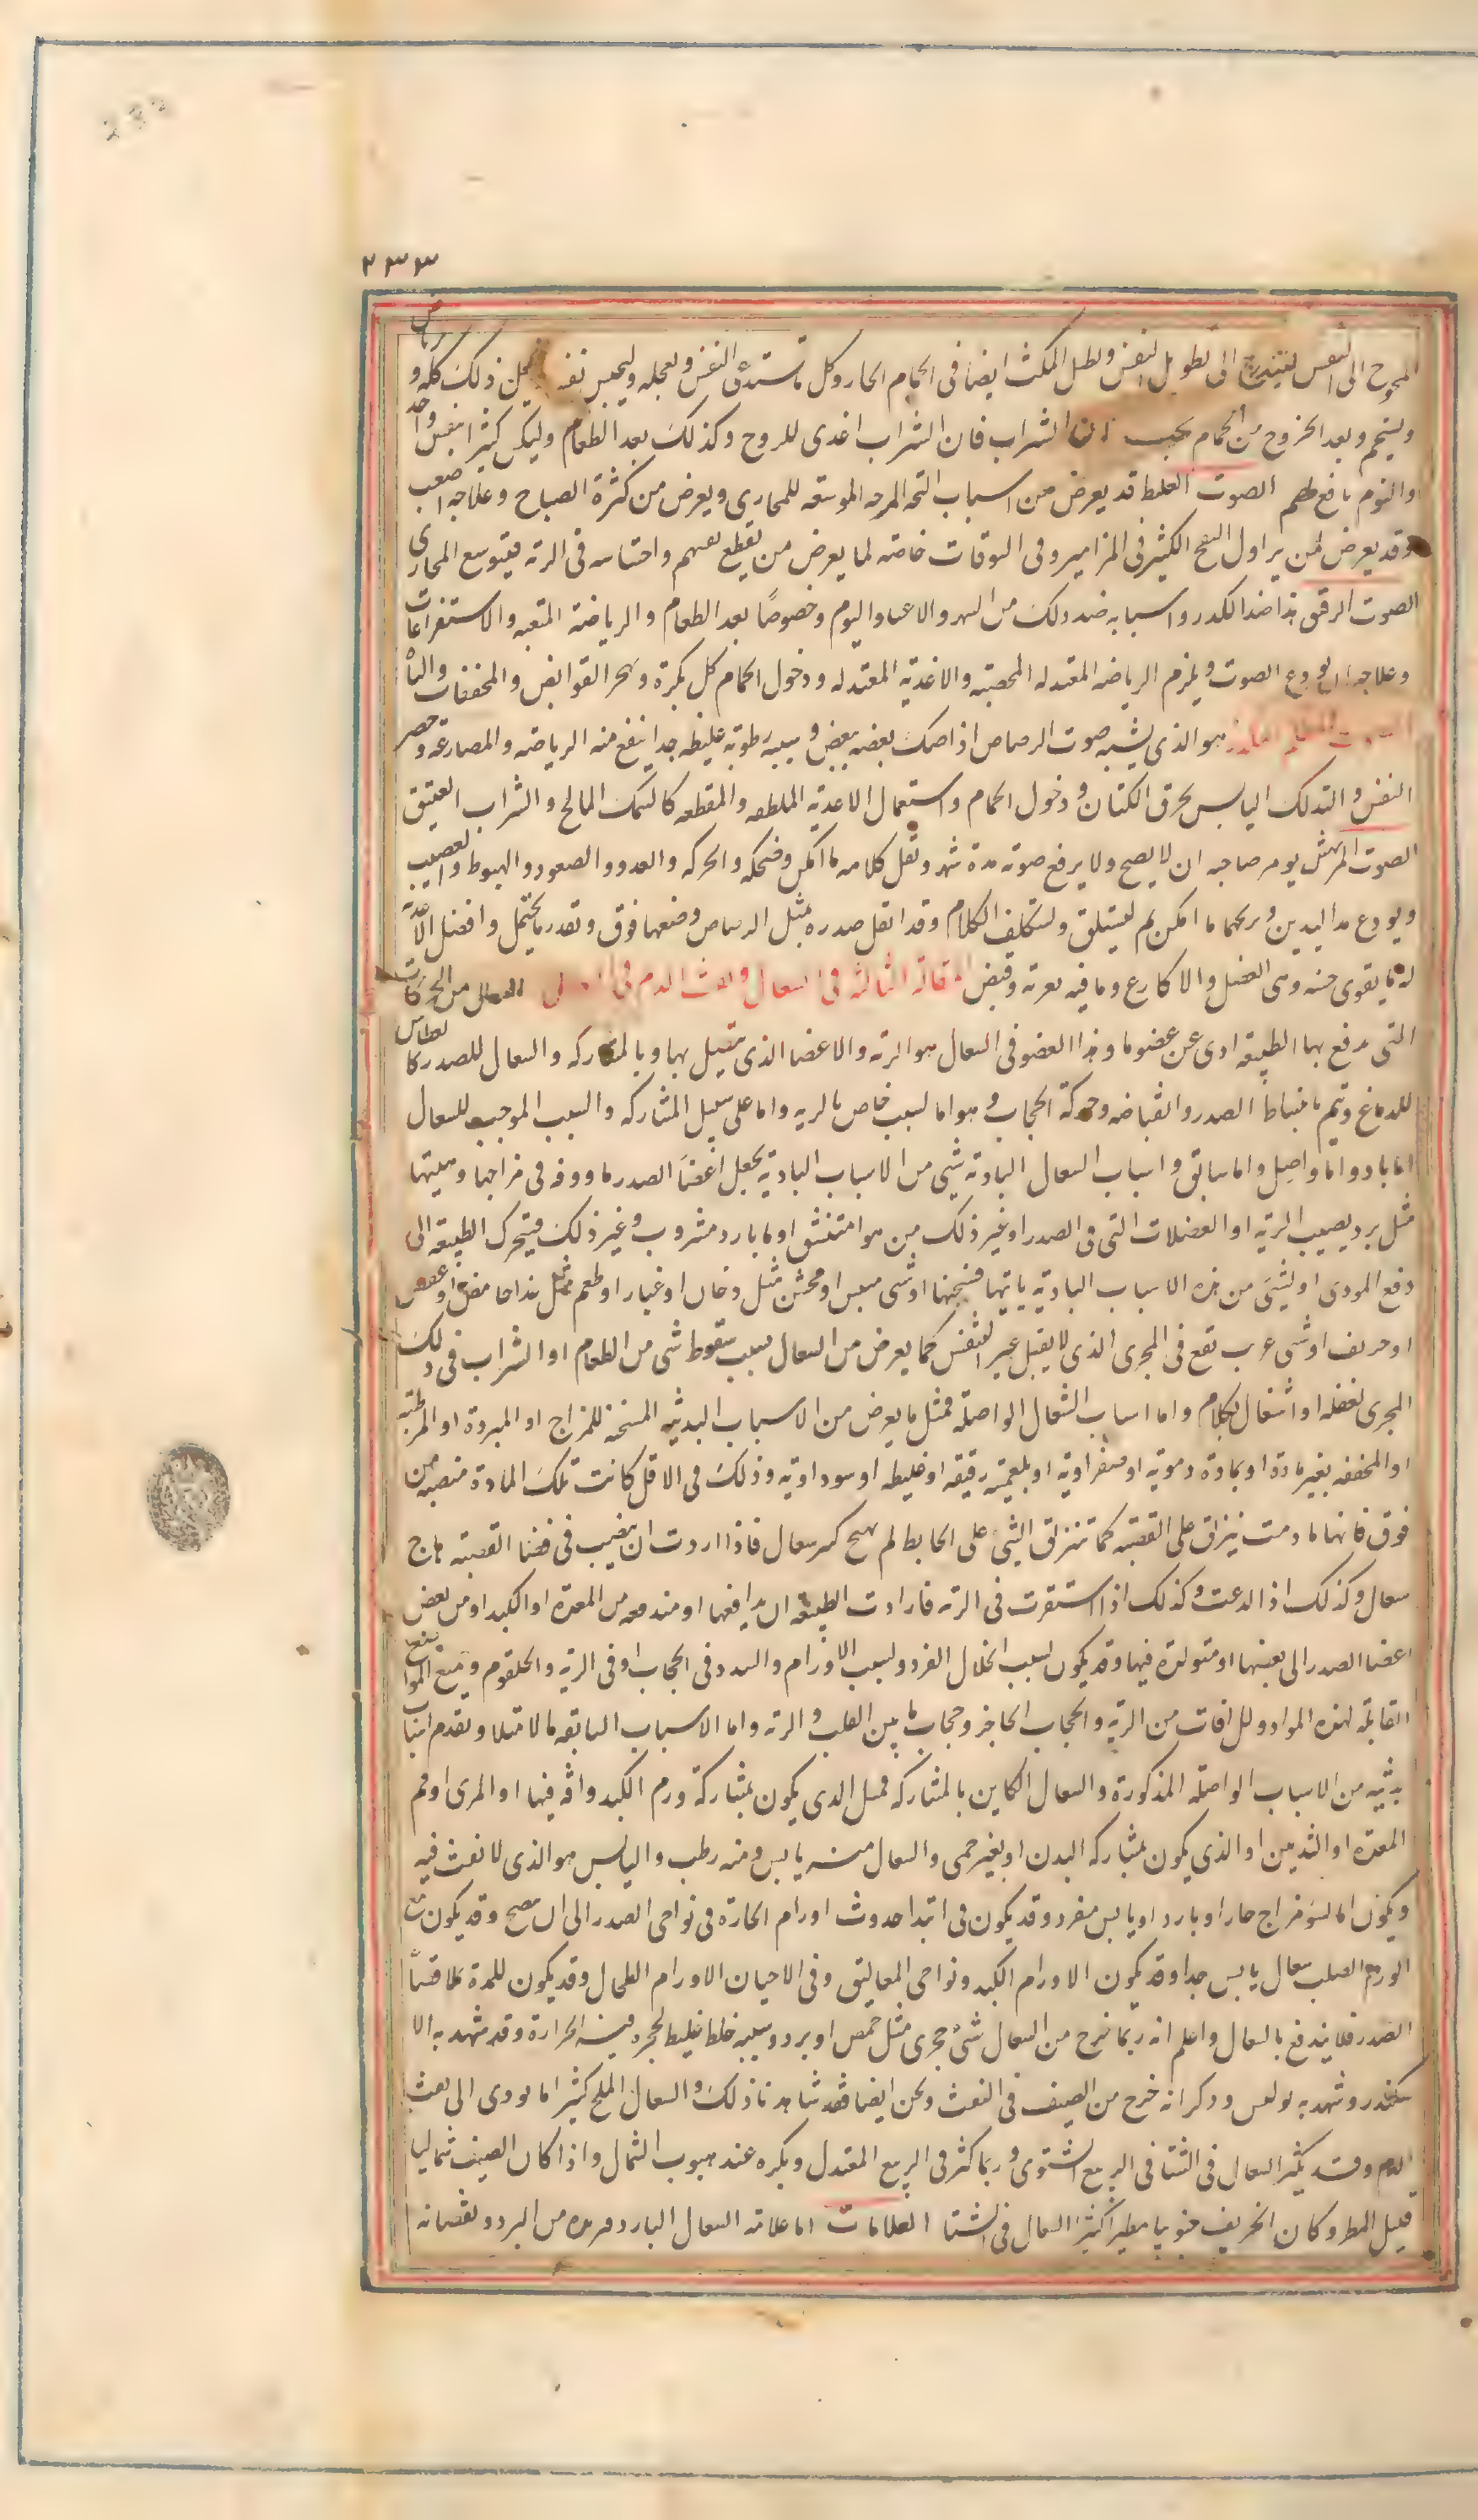 ٢٣٣
المحوج الى النفس ليتدرج الى تطويل النفس وليطل المكث ايضا فى الحمام الحار وكل ما يستدعى النفس ويعجله وليحبس نفسه ذلك كله و
وليتحم وبعد الخروج من الحمام يجب الشراب فان الشراب اغذى للروح وكذلك بعد الطعام وليكن كثيرا بنفس واحد
والنوم نافع لهم الصوت الغليظ قد يعرض من اسباب الموسعه للمجارى ويعرض من كثرة الصياح وعلاجه اصعب
وقد يعرض لمن يزاول النفخ الكثير فى المزامير وفى البوقات خاصة لما يعرض من تقطيع نفسهم واحتباسه فى الرية فيتوسع المجارى
الصوت الدقيق هذا ضد الكدر واسبابه ضد ذلك من السهر والاعياء والنوم وخصوصًا بعد الطعام والرياضة المتعبه والاستفراغات
وعلاجه ان يودع الصوت ويلزم الرياضه المعتدله المخصبة والاغذية المعتدله ودخول الحمام كل بكرة وهجر القوابض والمجففات والباه
هو الذى يشبه صوت الرصاص اذا صك بعضه ببعض وسببه رطوبة غليظه جدا ينفع منه الرياضه والمصارعه وحصر
النفس والتدلك اليابس بخرق الكتان ودخول الحمام واستعمال الاغذية الملطفه والمقطعه كالسمك المالح والشراب العتيق
الصوت المرتعش يومر صاحبه ان لا يصيح ولا يرفع صوته مدة شهر وتقل كلامه ما امكن وضحكه والحركه والعدو والصعود والهبوط والغضب
ويودع مد اليدين ويريحهما ما امكن ثم ليستلق وليتكلف الكلام وقد اثقل صدره بمثل الرصاص وضعها فوق وبقدر ما يحتمل وافضل الاغذية
له ما يقوى جنبه وهى العضل والاكارع وما فيه تغرية وقبض المقالة الثالثة فى السعال ونفث الدم السعال من الحركات
التى تدفع بها الطبيعه اذى عن عضو ما وهذا العضو فى السعال هو الرية والاعضا الذى يتصل بها وبالمشاركه والسعال للصدر كالعطاس
للدماغ ويتم بانبساط الصدر وانقباضه وحركة الحجاب وهو اما لسبب خاص بالرية واما على سبيل المشاركه والسبب الموجب للسعال
اما باد واما واصل واما سابق واسباب السعال البادية شى من الاسباب البادية يجعل اعضاَ الصدر ماووفه فى مزاجها وهيئتها
مثل برد يصيب الرية او العضلات التى فى الصدر او غير ذلك من هوا متنشق او ما بارد مشروب وغير ذلك فيتحرك الطبيعه الى
دفع الموذى او لشى من هذه الاسباب البادية ياتيها فيشنجها او شى ميبس او مخشن مثل دخان او غبار او طعم حامض او عفص
او حريف او شى غريب تقع فى المجرى الذى لا يقبل غير النفس كما يعرض من السعال بسبب سقوط شى من الطعام او الشراب فى ذلك
المجرى لغفله او اشتغال بكلام واما اسباب السعال الواصلة فمثل ما يعرض من الاسباب البدنية المسخنه للمزاج او المبردة او المرطبة
او المجففه بغير مادة او بمادة دموية او صفراوية او بلغمية رقيقه او غليظه او سوداوية وذلك فى الاقل كانت تلك المادة منصبه من
فوق فانها ما دامت ينزلق على القصبة كما تنزلق الشى على الحايط لم يهيج كثير سعال فاذا ارادت ان ينصب فى فضا القصبة هاج
سعال وكذلك اذا لدغت وكذلك اذا استقرت فى الرية فارادت الطبيعه ان يدافعها او مندفعه من المعدة او الكبد او من بعض
اعضا الصدر الى بعضها او متولدة فيها وقد يكون بسبب انحلال الفرد وبسبب الاورام والسدد فى الحجاب او فى الرية والحلقوم وجميع المواضع
القابلة لهذه المواد وللافات من الرية والحجاب الحاجز وحجاب ما بين القلب والرية واما الاسباب السابقه فالامتلا وتقدم اسباب
بدنية من الاسباب الواصله المذكورة والسعال الكاين بالمشاركه فمثل الذى يكون بمشاركة ورم الكبد وافة فيها او المرى او فم
المعدة او الثديين او الذى يكون بمشاركه البدن او بغير حمى والسعال منه يابس ومنه رطب واليابس هو الذى لا نفث فيه
ويكون اما لسو مزاج حار او بارد او يابس مفرد وقد يكون فى ابتدا حدوث اورام الحارة فى نواحى الصدر الى ان ينضج وقد يكون مع
الورم الصلب سعال يابس جدا وقد يكون الاورام الكبد ونواحى المعاليق وفى الاحيان الاورام الطحال وقد يكون للمدة ملاقية
الصدر فلا يندفع بالسعال واعلم انه ربما خرج من السعال شى حجرى مثل حمص او برد وسببه خلط غليظ تحجره فيه الحرارة وقد شهد به الا
سكندر وشهد به بولس وذكر انه خرج من الصيف فى النفث ونحن ايضا فقد شاهدنا ذلك والسعال الملح كثيرا ما يودى الى نفث
الدم وقد يكثر السعال فى الشتا فى الربيع الشتوى وربما كثر فى الربيع المعتدل ويكره عند هبوب الشمال واذا كان الصيف شماليا
قليل المطر وكان الخريف جنوبيا مطيرا كثير السعال فى الشتا العلامات اما علامة السعال البارد من البرد ونقصانه